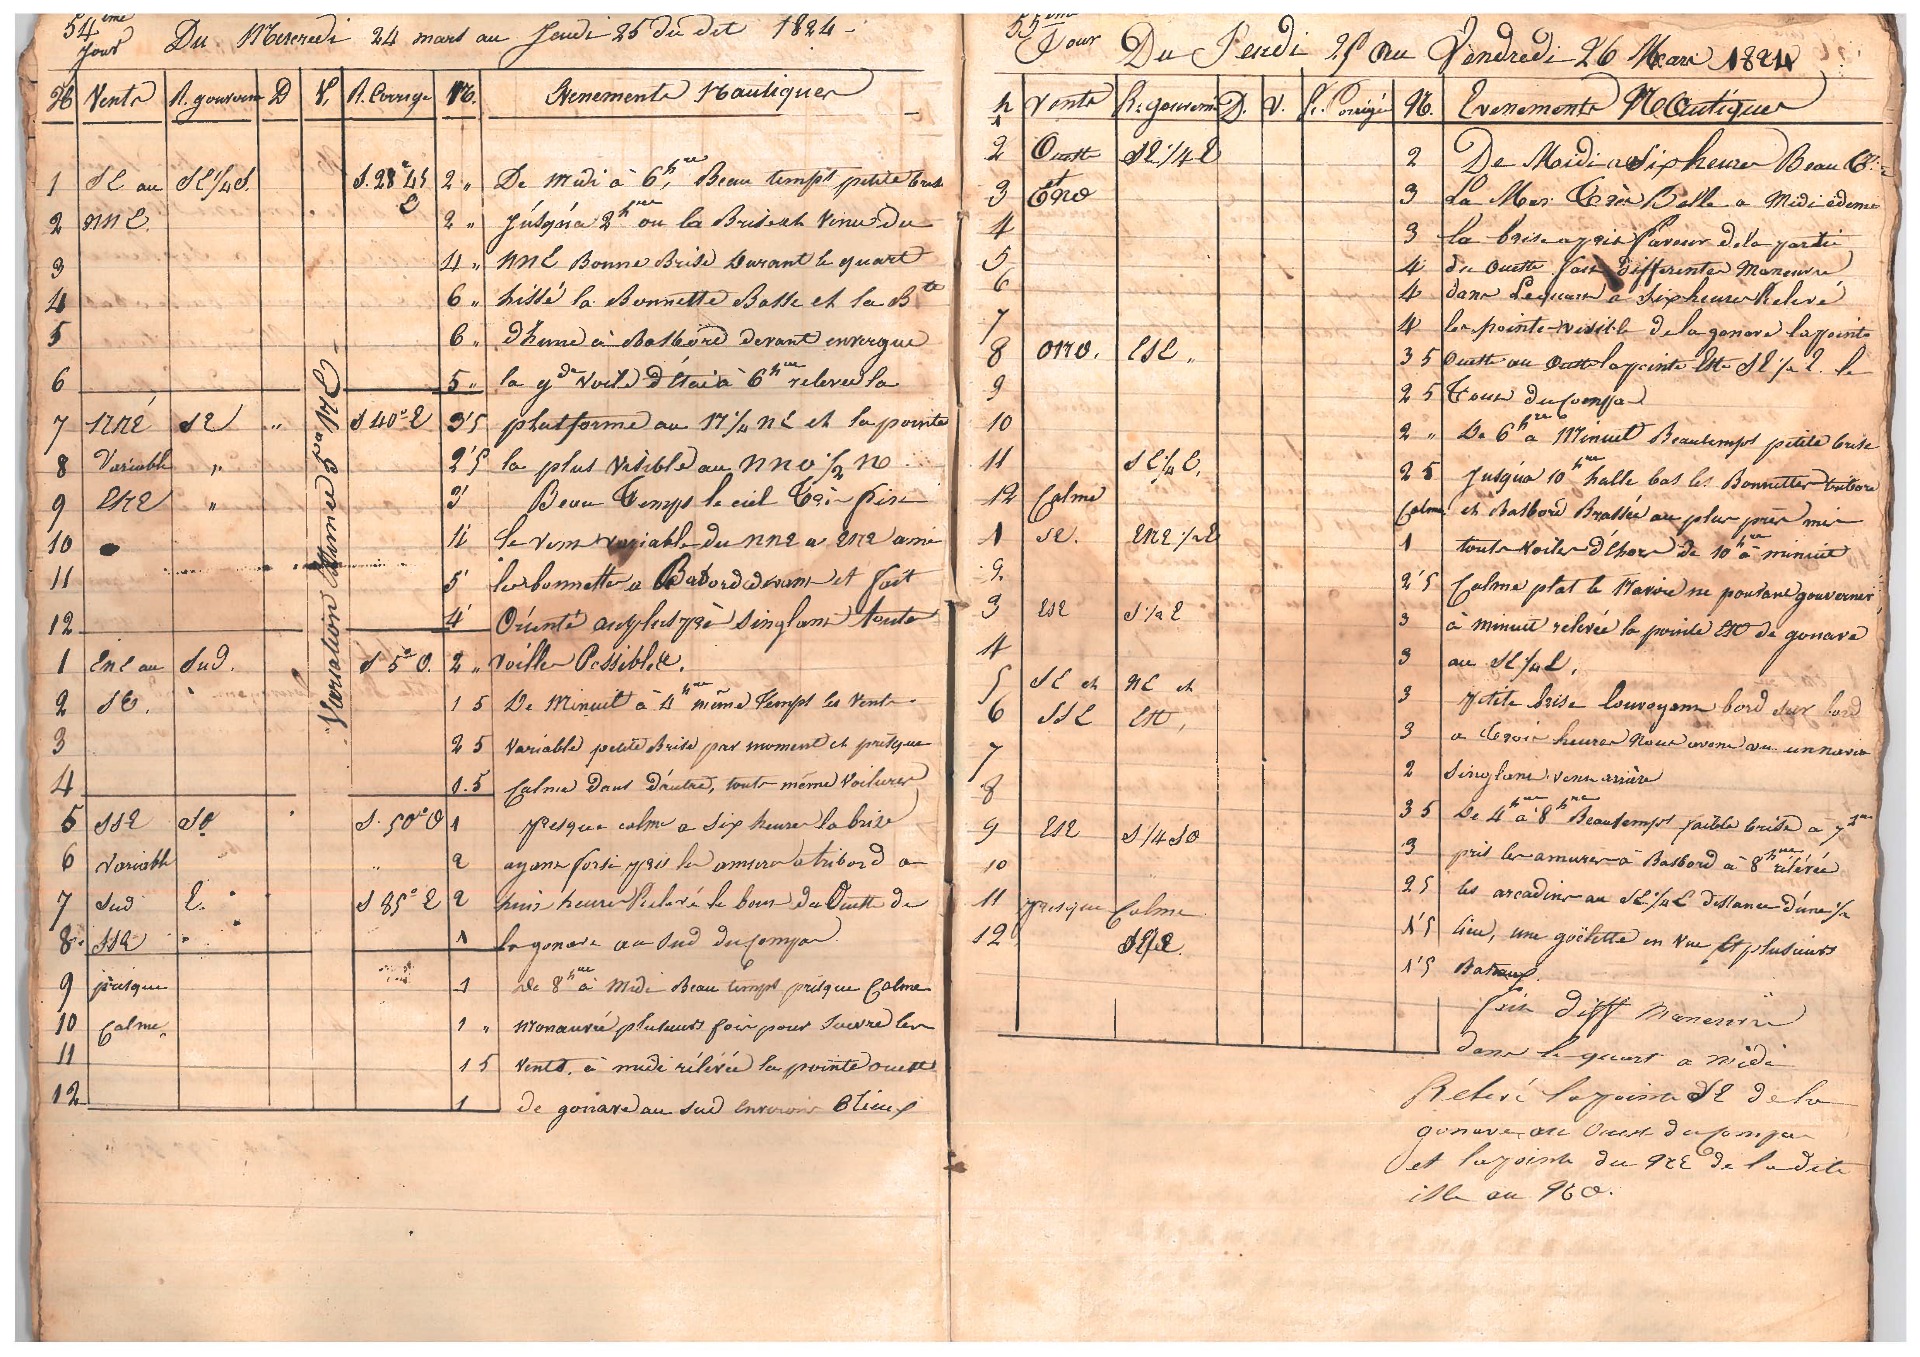 54ème
Jour Du Mercredi 24 mars au Jeudi 25 du dit 1824
H Vents R. gouverné D V. R. Corrigé M. Evenements Nautiques
1 SE au SE 1/4 S. S. 28° 45 E 2 " De Midi à 6 hres, Beau temps petite brise
2 NNE 2 " Jusqu'a 2 hres ou la Brise est venu du
3 4 " NNE Bonne Brise Durant le quart
4 6 " hissé la Bonnette Basse et la Bte
5 6 " d'hune à Basbord devant envergué
6 5 " la gde voile d'Etai à 6 hres relevée la
7 NNE SE " S 40° E 3'5 platforme au N 1/4 NE et la pointe
8 Variable " 2'5 la plus visible au NNO 1/2 N
9 ENE " 3' Beau Temps le ciel Très fin
10 4' le vent variable du NNE a ENE amené
11 5' les bonnettes a Babord devant et fait
12 4' Orienté au plus près singlant toute
1 ENE au Sud. S 5° O. 2 " voille Possible.
2 SE. 1 5 De Minuit à 4 hres même Temps les Vents
3 2 5 Variable petite Brise par moment et présque
4 1.5 Calme dans d'autre, toute même Voilures
5 SSE SO S. 50° O 1 Presque calme a six heures la brise
6 Variable " 2 ayant forsi pris les amures a tribord a
7 Sud E. S 85° E 2 huis heures Relevé le bout du Ouette de
8 SSE 1 la gonave au Sud du Compas
9 présque 1 De 8 hres à Midi Beau temps présque Calme
10 Calme 1 " Manauvré plusieurs fois pour suivre les
11 1 5 Vents. à midi rélévée la pointe ouette
12 1 de gonave au Sud environs 6 lieux
Variation Estimée 5° NE
55ème
Jour Du Jeudi 25 au Vendredi 26 Mars 1824
h Vents R. gouverné D. V. R. Corrigé N. Evenements NAutiques
1
2 Ouette SE 1/4 E 2 De Midi a Six heures Beau T.
3 et NO 3 La Mer Très Belle a Midi edemi
4 3 la brise a pris faveur de la partie
5 4 du Ouette fait differentes Maneuvre
6 4 dans Le quart a Six heures Relevé
7 4 les pointe visible de la gonave la pointe
8 ONO. ESE " 3 5 Ouette au Ouette la pointe Este SE 1/4 E. le
9 2 5 Tout du Compas
10 2 " De 6 hres à Minuit Beau temps petite brise
11 SE 1/4 E, 2 5 Jusqu'a 10 hres halle bas les Bonnettes tribord
12 Calme Calme et Basbord Brassée au plus près mis
1 SE. ENE 1/2 E 1 toute voiles d'ehors de 10 hres à minuit
2 2'5 Calme plat le Navire ne poutant gouverner
3 ESE S 1/4 E 3 à minuit relevée la pointe Est de gonave
4 3 au SE 1/4 E.
5 SE et NE et 3 Petite brise louvoyant bord sur bord
6 SSE Est, 3 a Trois heures Nous avons vu un navire
7 2 singlant vent arrière
8 3 5 De 4 hres à 8 hres Beau temps faible brise à 7 hres
9 ESE S 1/4 SO 3 pris les amures à Basbord à 8 hres rélévée
10 2 5 les arcadins au SE 1/4 E distance d'une 1/2
11 Presque Calme 1'5 lieu, une goëlette en vue et plusieurs
12 1'5 Bateaux
fait diff Maneuvre
dans le quart a midi
Relevé la pointe SE de la
gonave au Ouest du Compas
et la pointe du NE de la dite
isle au NO.